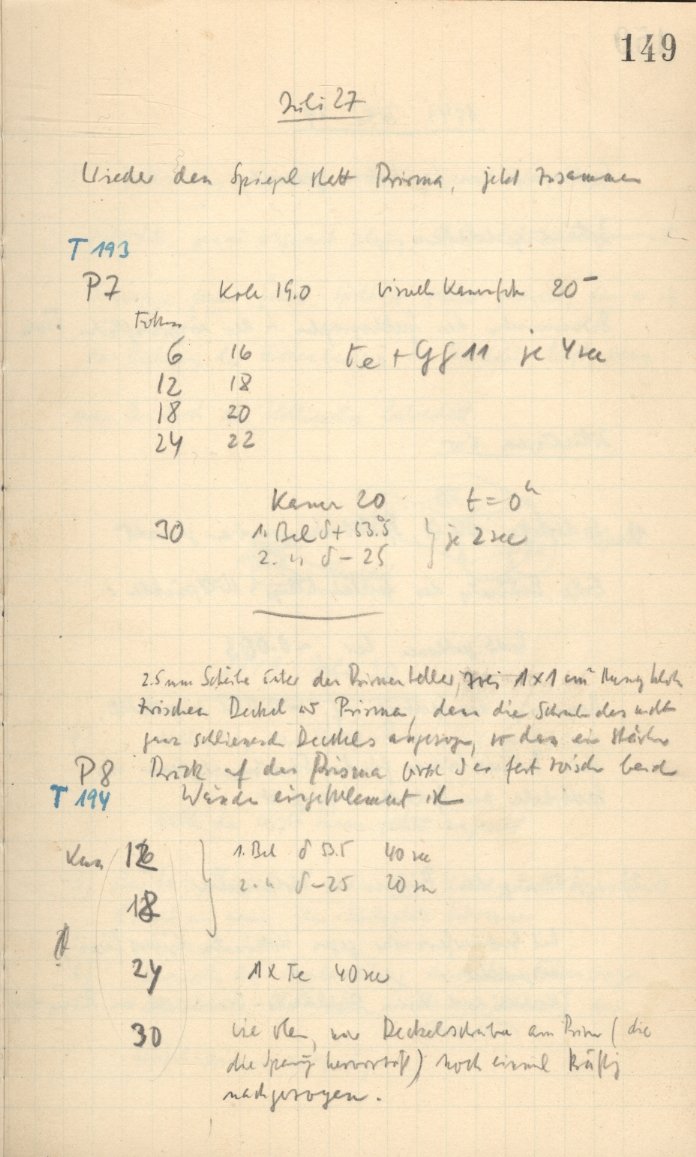 149
Juli 27
Wieder den Spiegel statt Prisma, jetzt zusammen
T 193
P7 19.0 20
6 16
12 18
18 20
24 22
Te + GG 11 je 4 sec
Kamer 20 t = 0h
30 1. Bel δ + 53.5
2. " δ - 25
je 2 sec
2.5 mm Scheibe unter den Prismenteller, zwei 1x1 cm
zwischen Deckel und Prisma, dann die Schraube des nicht
ganz schliessenden Deckels angezogen, so dass ein starker
P8 Druck auf das Prisma wirkt das fest zwischen beide
T 194 Wände eingeklemmt ist
1. Bel δ 53.5 40 sec
2. " δ - 25 20 sec
18
24 1 x Te 40 sec
30 wie oben, nur Deckelschraube am Prisma (die
die Spannung hervorruft) noch einmal kräftig
nachgezogen.